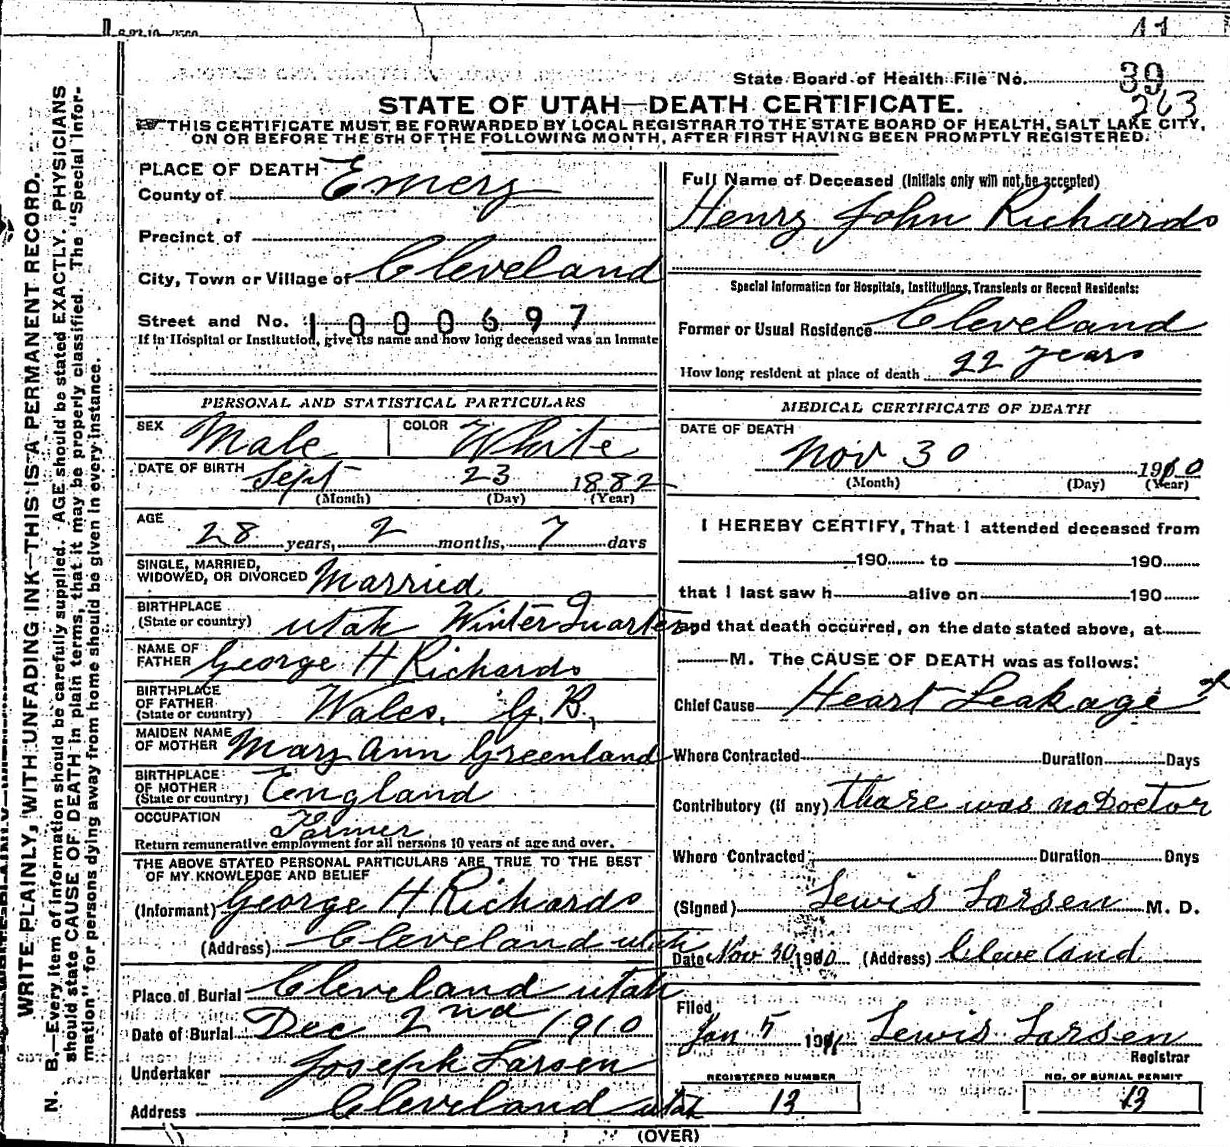 11
State Board of Health File No. 39
263
STATE OF UTAH—DEATH CERTIFICATE.
THIS CERTIFICATE MUST BE FORWARDED BY LOCAL REGISTRAR TO THE STATE BOARD OF HEALTH, SALT LAKE CITY,
ON OR BEFORE THE 5TH OF THE FOLLOWING MONTH, AFTER FIRST HAVING BEEN PROMPTLY REGISTERED.
WRITE PLAINLY, WITH UNFADING INK—THIS IS A PERMANENT RECORD.
N. B.—Every item of information should be carefully supplied. AGE should be stated EXACTLY. PHYSICIANS
should state CAUSE OF DEATH in plain terms, that it may be properly classified. The "Special Infor-
mation" for persons dying away from home should be given in every instance.
PLACE OF DEATH
County of Emery
Precinct of
City, Town or Village of Cleveland
Street and No. 1000697
If in Hospital or Institution, give its name and how long deceased was an Inmate
PERSONAL AND STATISTICAL PARTICULARS
SEX Male COLOR White
DATE OF BIRTH Sept 23 1882
(Month) (Day) (Year)
AGE
28 years, 2 months, 7 days
SINGLE, MARRIED,
WIDOWED, OR DIVORCED Married
BIRTHPLACE
(State or country) Utah Winter Quarters
NAME OF
FATHER George H Richards
BIRTHPLACE
OF FATHER
(State or country) Wales, G. B.,
MAIDEN NAME
OF MOTHER Mary Ann Greenland
BIRTHPLACE
OF MOTHER
(State or country) England
OCCUPATION
Farmer
Return remunerative employment for all persons 10 years of age and over.
THE ABOVE STATED PERSONAL PARTICULARS ARE TRUE TO THE BEST
OF MY KNOWLEDGE AND BELIEF
(Informant) George H Richards
(Address) Cleveland utah
Place of Burial Cleveland utah
Date of Burial Dec 2nd 1910
Undertaker Joseph Larsen
Address Cleveland utah
Full Name of Deceased (Initials only will not be accepted)
Henry John Richards
Special Information for Hospitals, Institutions, Transients or Recent Residents:
Former or Usual Residence Cleveland
How long resident at place of death 22 years
MEDICAL CERTIFICATE OF DEATH
DATE OF DEATH
Nov 30 1910
(Month) (Day) (Year)
I HEREBY CERTIFY, That I attended deceased from
190 to 190
that I last saw h alive on 190
and that death occurred, on the date stated above, at
M. The CAUSE OF DEATH was as follows:
Chief Cause Heart Leakage of
Where Contracted Duration Days
Contributory (if any) thare was no Doctor
Where Contracted Duration Days
(Signed) Lewis Larsen M. D.
Date Nov 30 1910 (Address) Cleveland
Filed
Jan 5 1911 Lewis Larsen
Registrar
REGISTERED NUMBER NO. OF BURIAL PERMIT
13 13
(OVER)